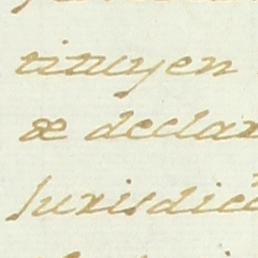 tituyen
se declar
Jurisdicc